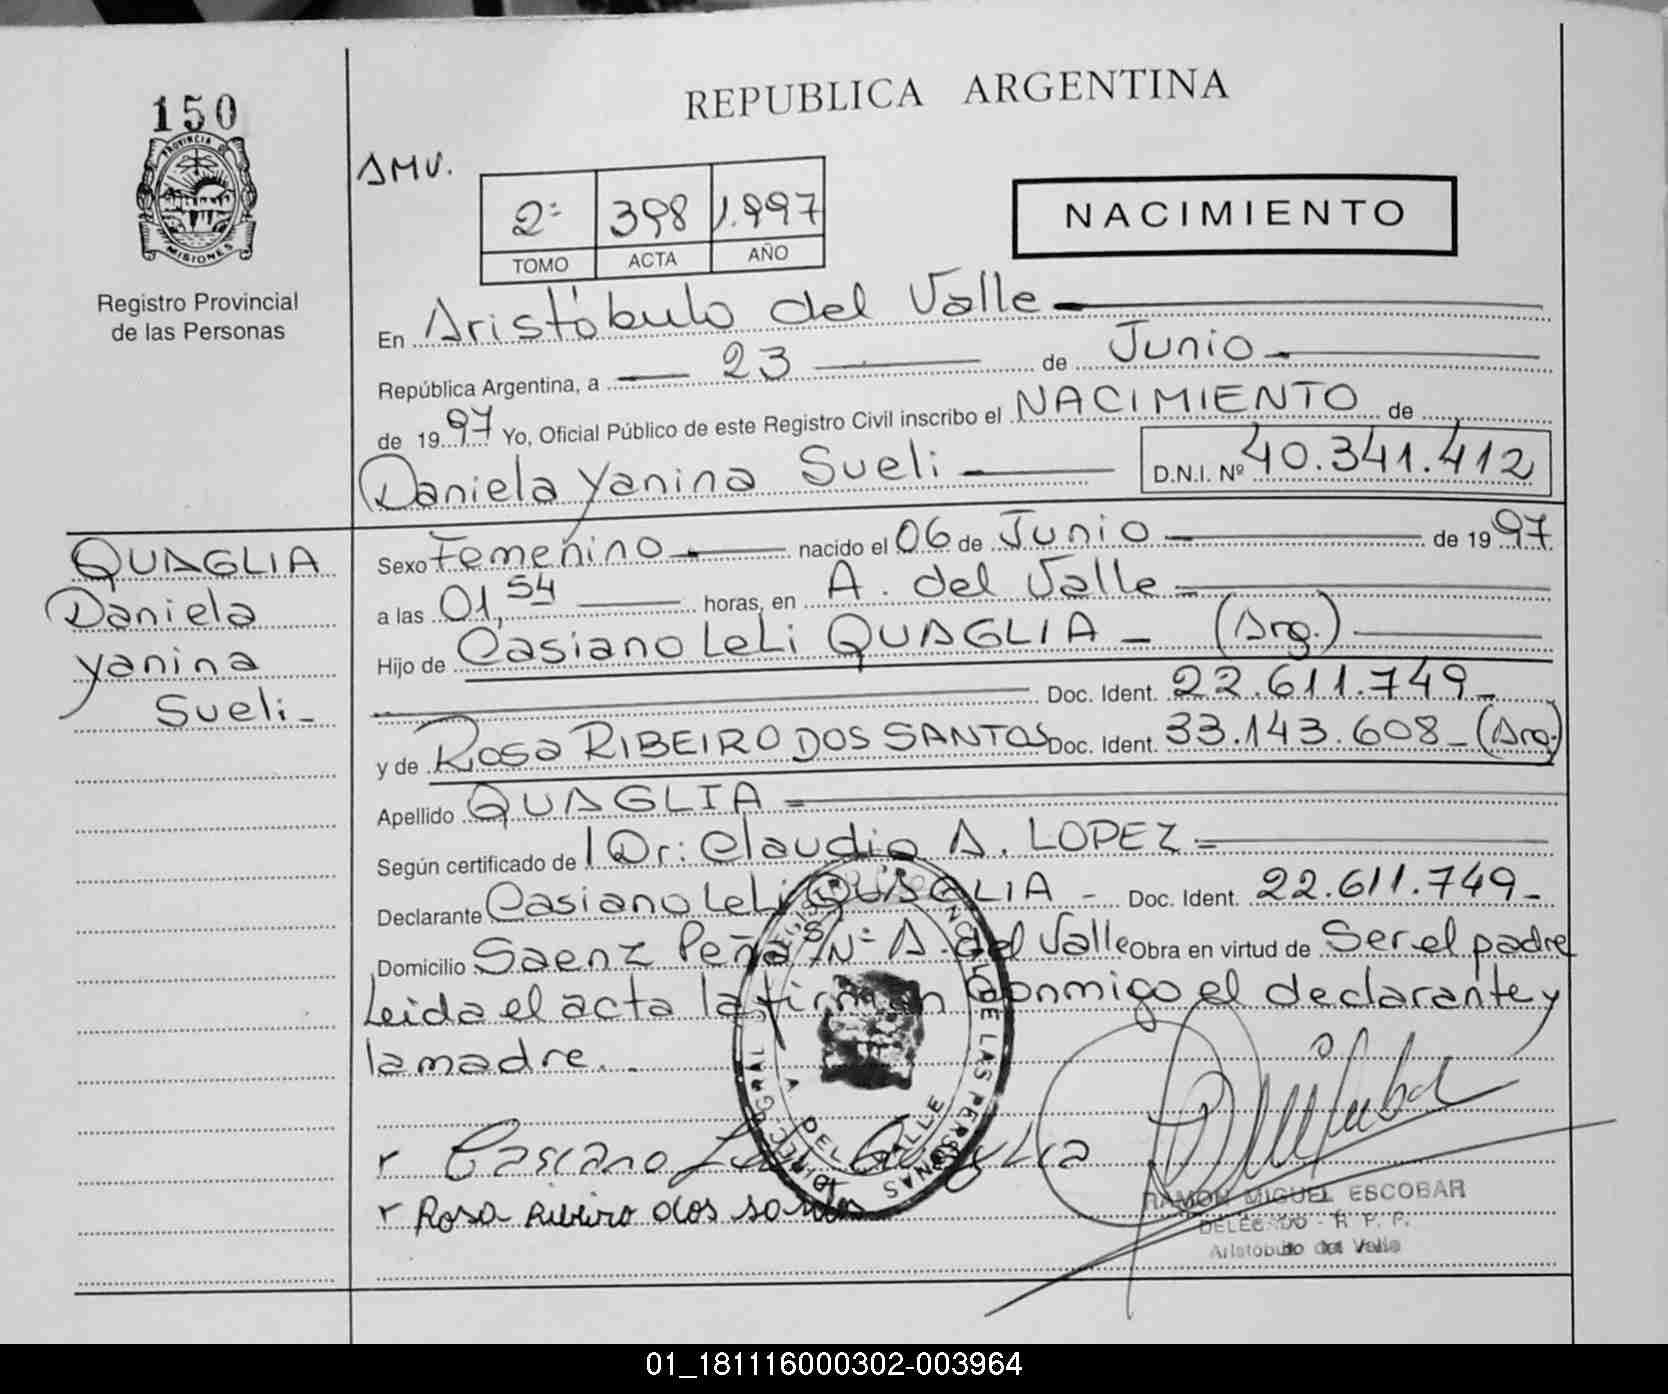 150
PROVINCIA DE
MISIONES
Registro Provincial
de las Personas
REPUBLICA ARGENTINA
AMV.
2º 398 1.997
TOMO ACTA AÑO
NACIMIENTO
En Aristóbulo del Valle
República Argentina, a 23 de Junio
de 1997 Yo, Oficial Público de este Registro Civil inscribo el NACIMIENTO de
Daniela Yanina Sueli D.N.I. Nº 40.341.412
QUAGLIA
Daniela
Yanina
Sueli
Sexo Femenino nacido el 06 de Junio de 1997
a las 01,54 horas, en A. del Valle
Hijo de Casiano LeLi QUAGLIA (Arg.)
Doc. Ident. 22.611.749
y de Rosa RIBEIRO DOS SANTOS Doc. Ident. 33.143.608 (Arg.)
Apellido QUAGLIA
Según certificado de Dr: Claudio A. LOPEZ
Declarante Casiano LeLi QUAGLIA Doc. Ident. 22.611.749
Domicilio Saenz Peña S/Nº A. del Valle Obra en virtud de Ser el padre
Leida el acta la firman conmigo el declarante y
la madre.
Casiano Leli Quaglia
Rosa Ribeiro dos santos
DE LAS PERSONAS
A. DEL VALLE
RAMON MIGUEL ESCOBAR
DELEGADO - R. P. P.
Aristóbulo del Valle
01_181116000302-003964